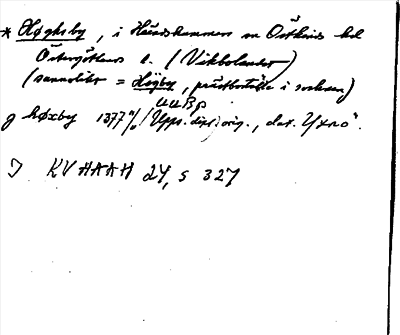 * Høghsby, i Häradshammars sn Östkinds hd
Östergötlands l. (Vikbolandet)
(sannolikt = Högby, prästboställe i socknen)
UUB p
g høxby 1377 /Upps. dipl. orig., dat.
KVHAAH 24, s 327